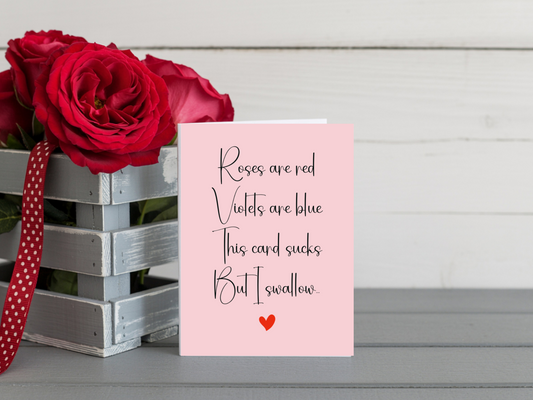 Roses are red
Violets are blue
This card sucks
But I swallow...